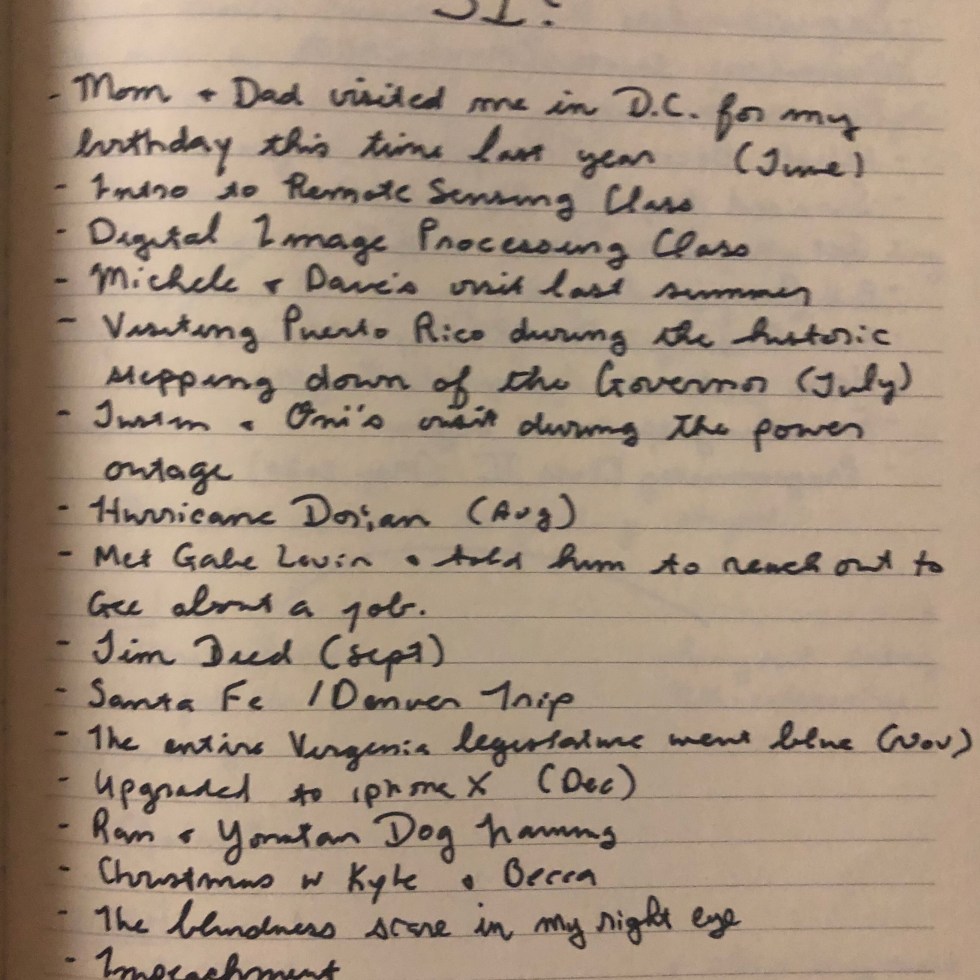 51?
- Mom + Dad visited me in D.C. for my
birthday this time last year (June)
- Intro to Remote Sensing Class
- Digital Image Processing Class
- Michele + Dave's visit last summer
- Visiting Puerto Rico during the historic
stepping down of the Governor (July)
- Justin + Omi's visit during the power
outage
- Hurricane Dorian (Aug)
- Met Gabe Levin + told him to reach out to
Gee about a job.
- Jim Died (Sept)
- Santa Fe / Denver Trip
- The entire Virginia legislature went blue (Nov)
- Upgraded to iphone X (Dec)
- Ran + Yonatan Dog naming
- Christmas w Kyle + Becca
- The blindness scare in my right eye
- Impeachment